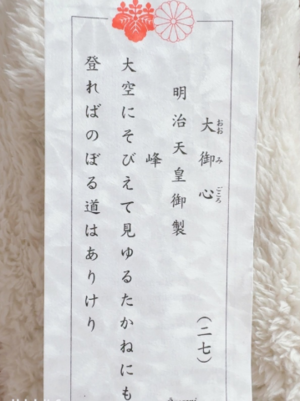 大御心
おおみごころ
(二七)
明治天皇御製
峰
大空にそびえて見ゆるたかねにも
登ればのぼる道はありけり